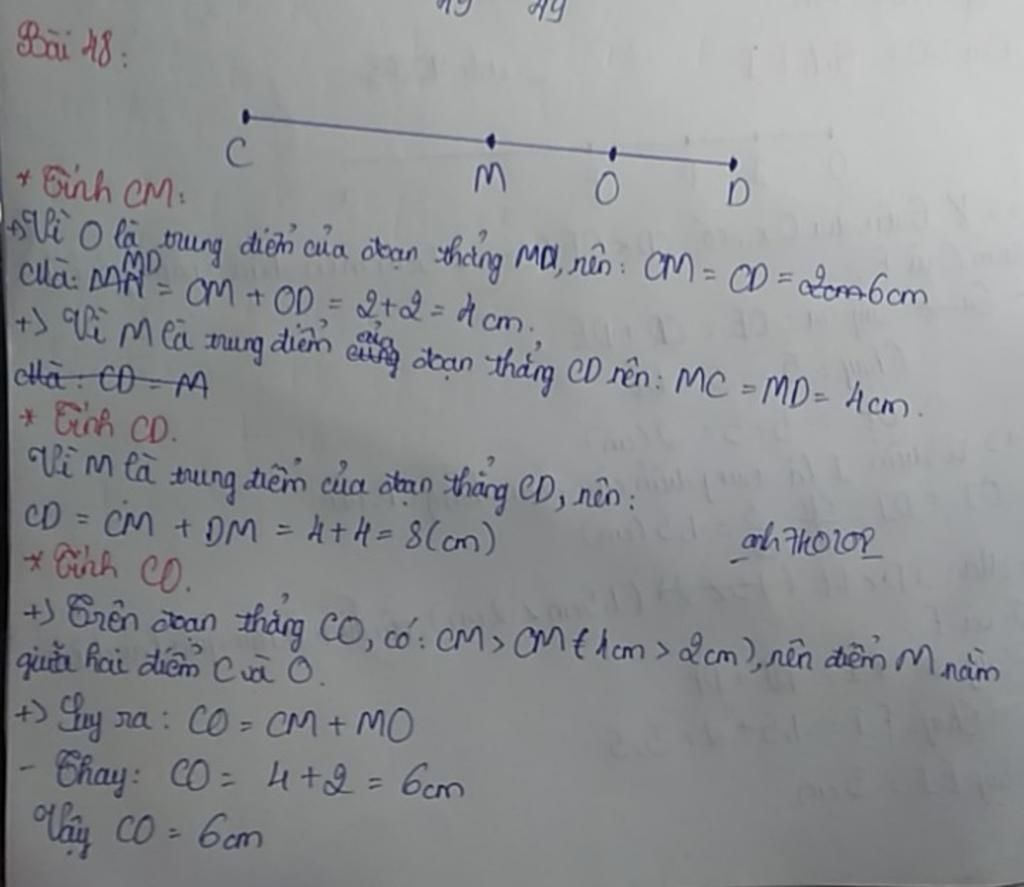 49 49
Bài 48:
C M O D
* Tính CM:
+) Vì O là trung điểm của đoạn thẳng MD, nên: OM = OD = 2cm
Mà: MD = OM + OD = 2+2 = 4cm.
+) Vì M là trung điểm của đoạn thẳng CD nên: MC = MD = 4cm.
Mà: CD = M
* Tính CD.
Vì M là trung điểm của đoạn thẳng CD, nên:
CD = CM + DM = 4+4 = 8(cm)
anh7h0202
* Tính CO.
+) Trên đoạn thẳng CO, có: CM > OM (4cm > 2cm), nên điểm M nằm
giữa hai điểm C và O.
+) Suy ra: CO = CM + MO
- Thay: CO = 4+2 = 6cm
Vậy CO = 6cm